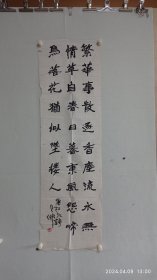 繁華事散逐香塵流水無
情草自春日暮東風怨啼
鳥落花猶似墜樓人
2024.04.09